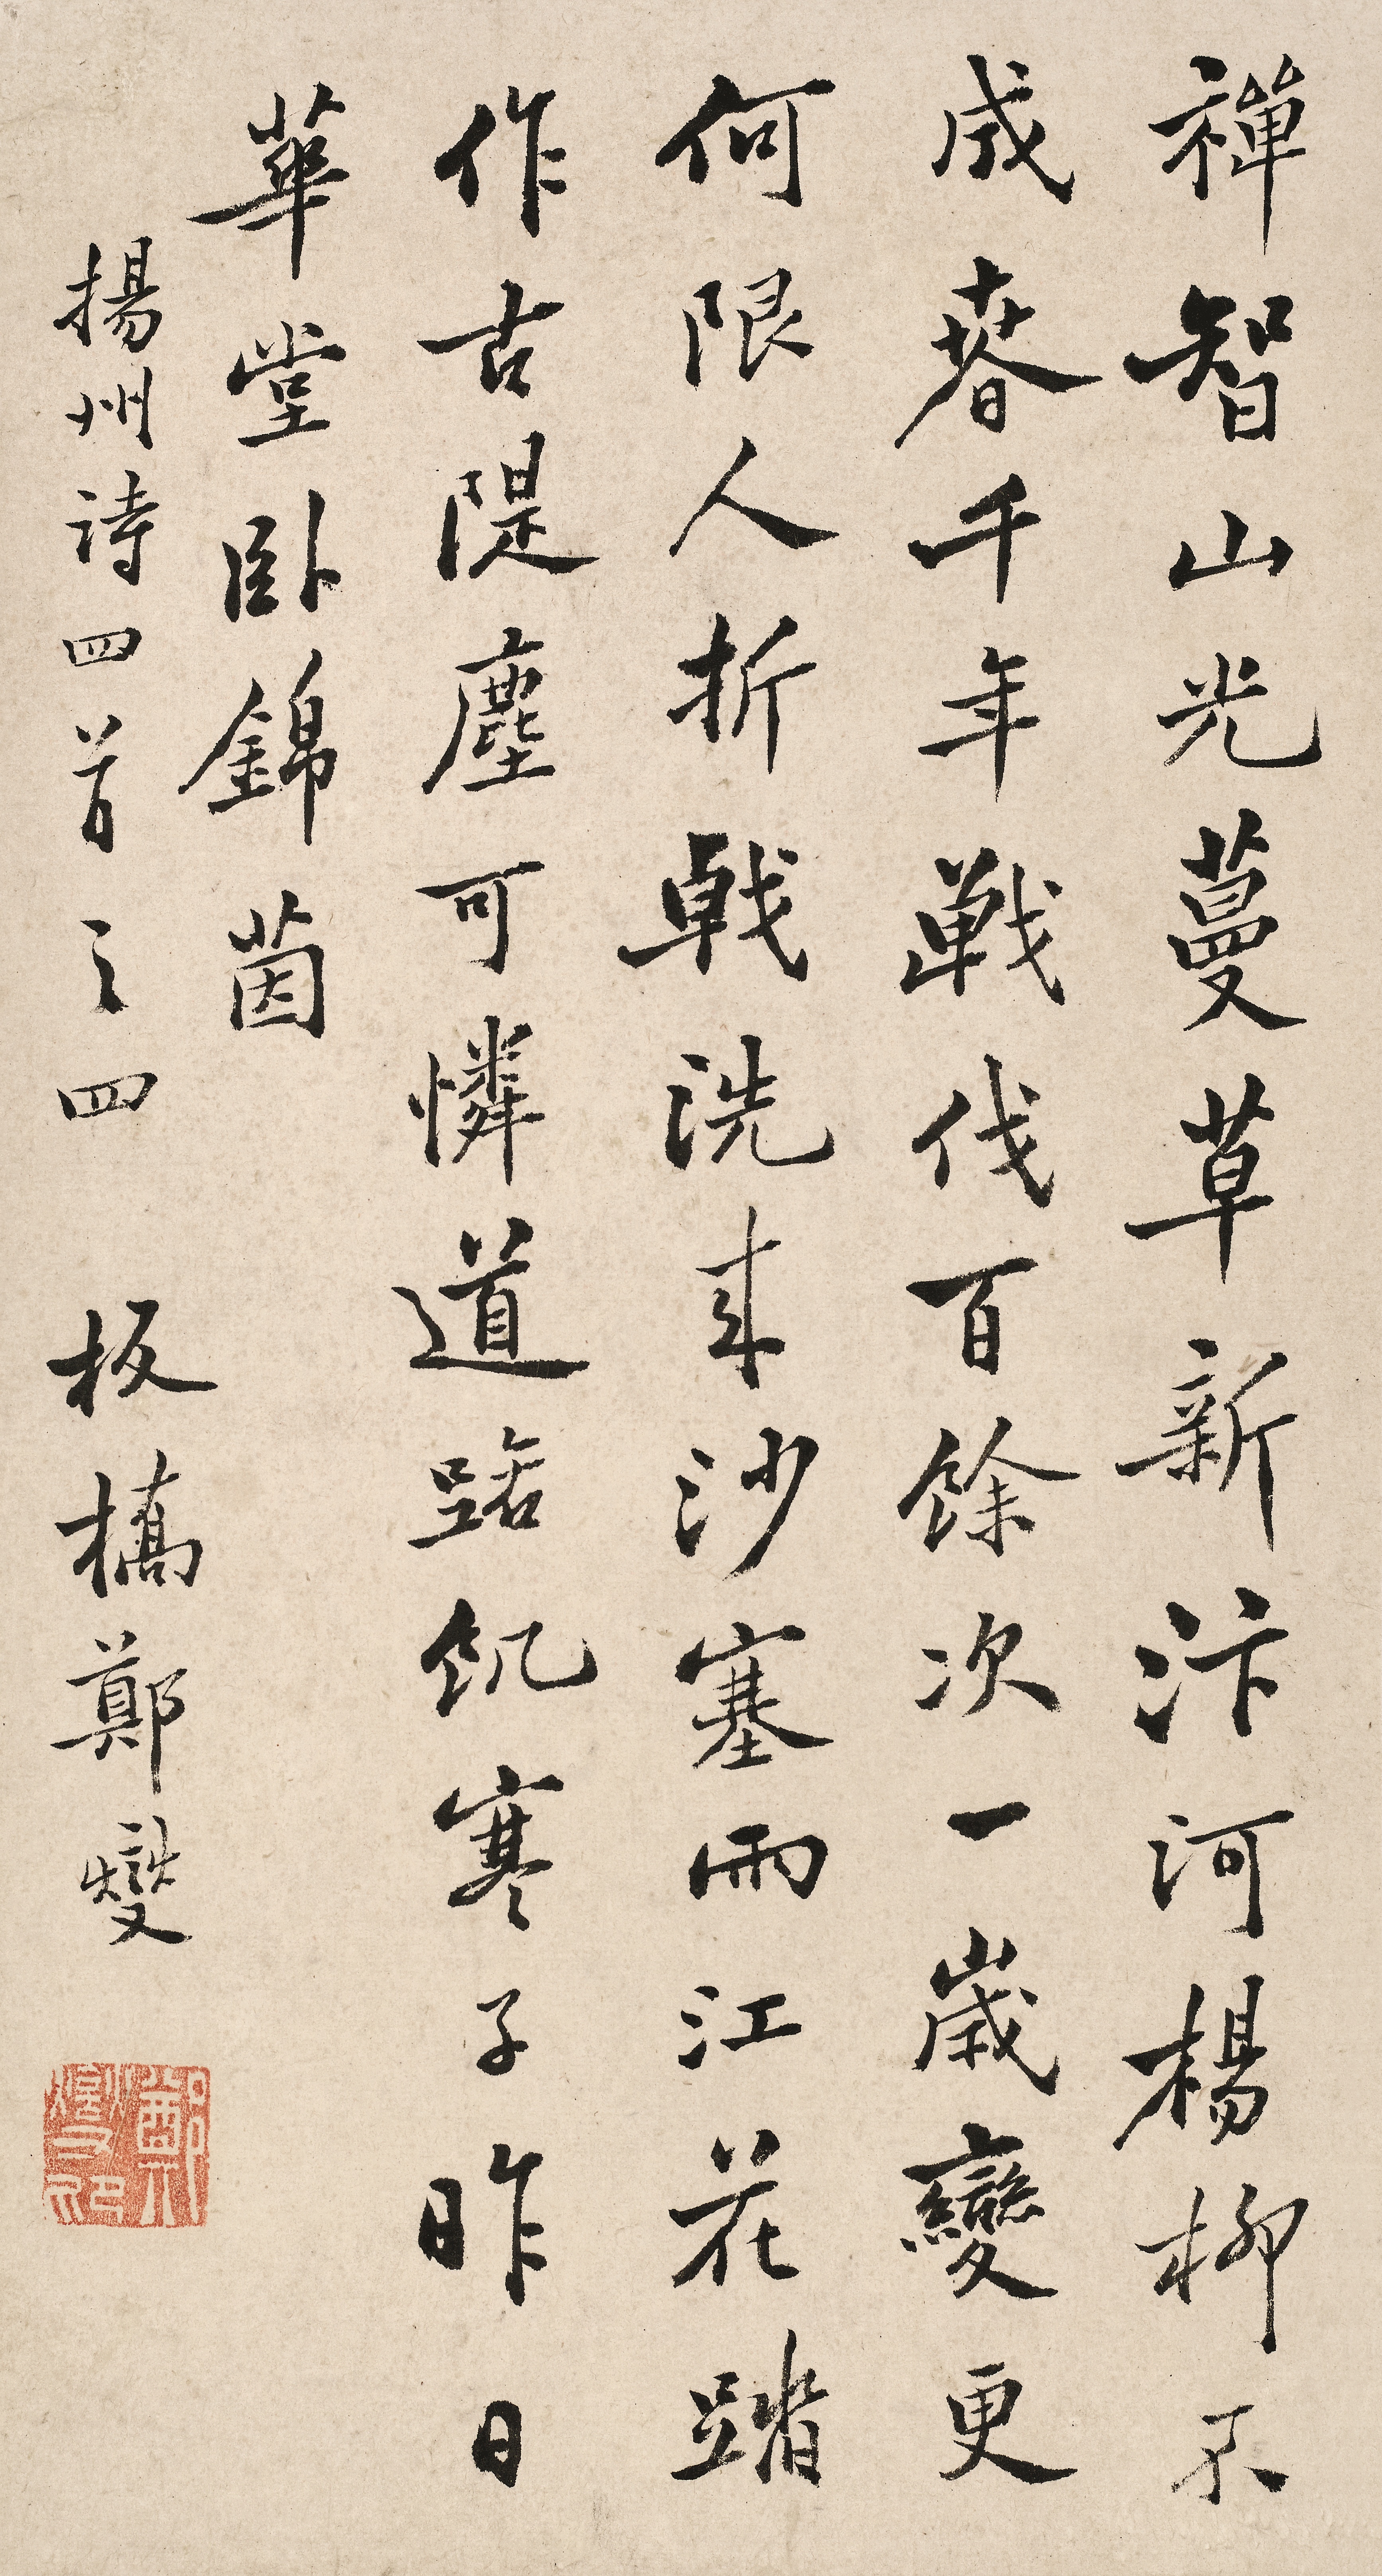 禪智山光蔓草新汴河楊柳不
成春千年戰伐百餘次一歲變更
何限人折戟洗来沙塞雨江花踏
作古隄塵可憐道路飢寒子昨日
華堂臥錦茵
揚州詩四首之四 板橋鄭燮
鄭燮之印